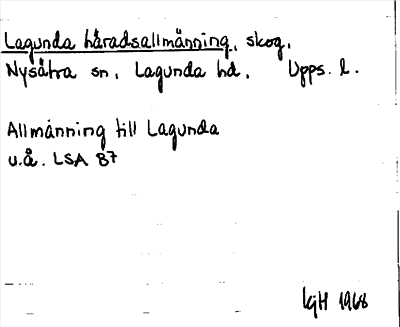 Lagunda häradsallmänning, skog,
Nysätra sn, Lagunda hd, Upps. l.
Allmänning till Lagunda
u.å. LSA B7
LgH 1968